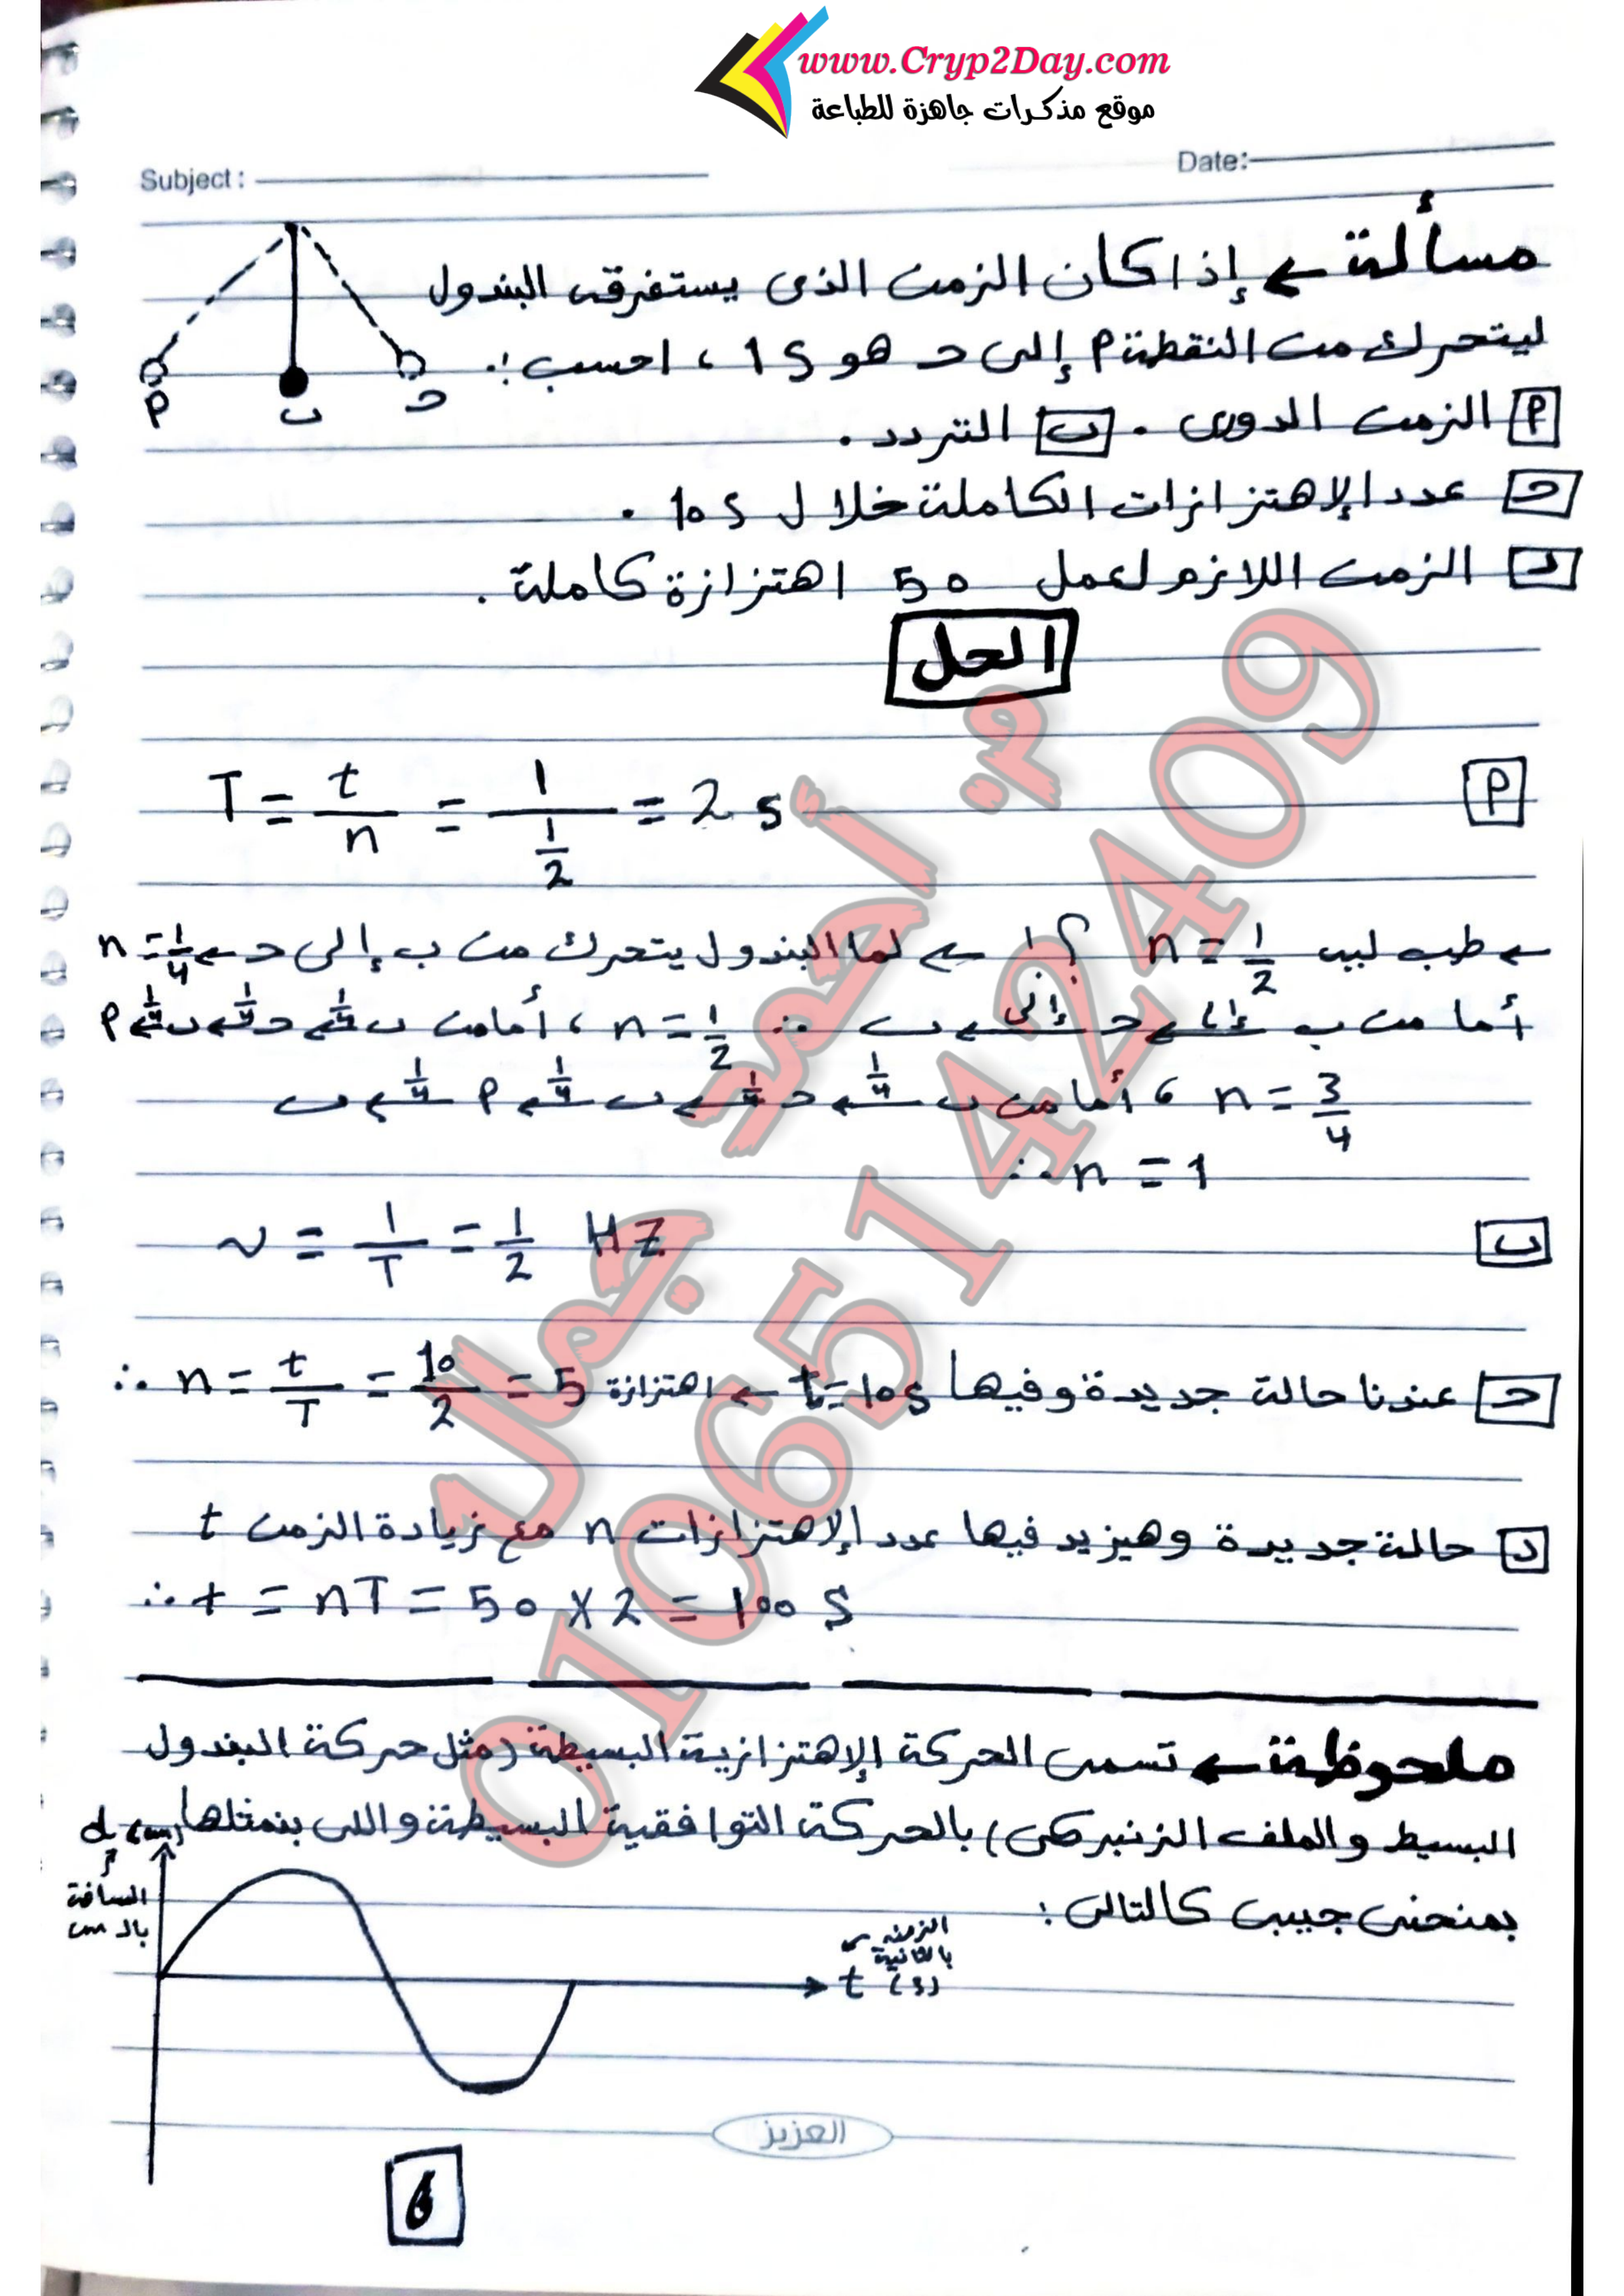 www.Cryp2Day.com
موقع مذكرات جاهزة للطباعة
Subject :
Date:
مسألة ← إذا كان الزمن الذى يستغرقه البندول
ليتحرك من النقطة P إلى حـ هو 1 s ، احسب :
P الزمن الدورى . ب التردد .
حـ عدد الإهتزازات الكاملة خلال 10 s .
د الزمن اللازم لعمل 50 اهتزازة كاملة .
P ب حـ
الحل
P T = t/n = 1/(1/2) = 2 s
← طب ليه n = 1/2 ؟! ← لما البندول يتحرك من ب إلى حـ ← n = 1/4
أما من ب إلى حـ إلى ب ∴ n = 1/2 ، أما من ب 1/4← حـ 1/4← ب 1/4← P
n = 3/4 ، أما من ب 1/4← حـ 1/4← ب 1/4← P 1/4← ب
∴ n = 1
ب ν = 1/T = 1/2 HZ
حـ عندنا حالة جديدة وفيها t = 10 s ← ∴ n = t/T = 10/2 = 5 اهتزازة
د حالة جديدة وهيزيد فيها عدد الإهتزازات n مع زيادة الزمن t
∴ t = nT = 50 x 2 = 100 S
ملحوظة ← تسمى الحركة الإهتزازية البسيطة (مثل حركة البندول
البسيط والملف الزنبركى) بالحركة التوافقية البسيطة واللى بنمثلها
بمنحنى جيبى كالتالى :
d (cm)
المسافة
بالـ cm
الزمن
بالثانية
t (s)
العزيز
6
م. أحمد جمال
01065142409